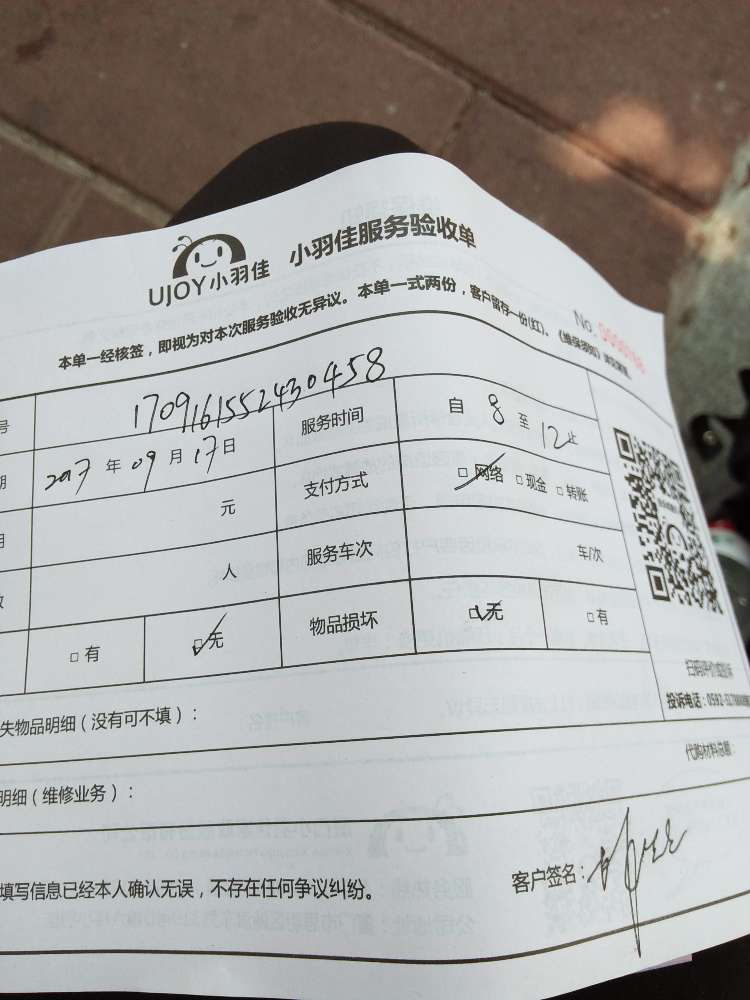 UJOY小羽佳 小羽佳服务验收单
No.
本单一经核签，即视为对本次服务验收无异议。本单一式两份，客户留存一份(红)。《维保须知》
号 1709161552430458 服务时间 自 8 至 12 止
期 2017 年 09 月 17 日 支付方式 □ 网络 □ 现金 □ 转账
元
人 服务车次 车/次
□ 有 □ 无 物品损坏 □ 无 □ 有
扫码评价或投诉
投诉电话：0592-
失物品明细（没有可不填）：
代购材料总额：
明细（维修业务）：
填写信息已经本人确认无误，不存在任何争议纠纷。
客户签名：